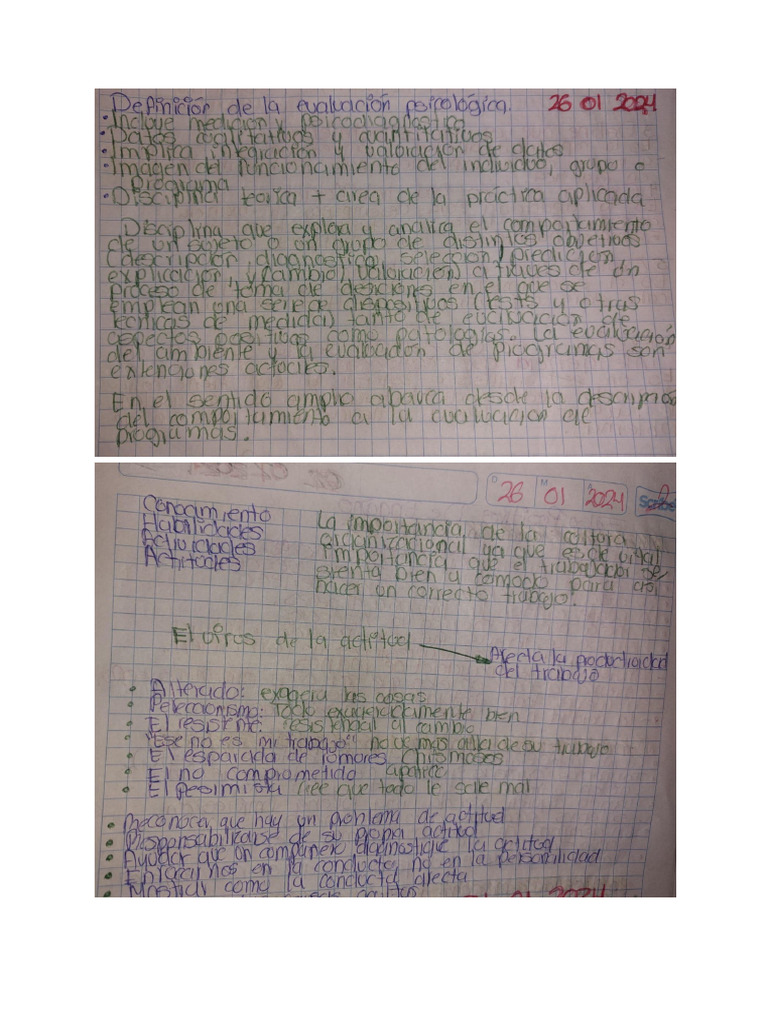 Definición de la evaluación psicológica. 26 01 2024
• Incluye medición y psicodiagnostico
• Datos cualitativos y cuantitativos
• Implica integración y valoración de datos
• Imagen del funcionamiento del individuo, grupo o
programa
• Disciplina teorica + area de la práctica aplicada
Disciplina que explora y analiza el comportamiento
de un sujeto o un grupo de distintos objetivos
(descripción, diagnostico, selección, predicción,
explicación, y cambio) valoración a traves de un
proceso de toma de desiciones en el que se
emplean una serie de dispositivos (tests y otras
tecnicas de medida) tanto de evaluación de
aspectos positivos como patologías. La evaluación
del ambiente y la evaluación de programas son
extenciones actuales.
En el sentido amplio abarca desde la descripción
del comportamiento a la evaluación de
programas.
26 01 2024
Conocimiento
Habilidades
Actividades
Actitudes
La importancia de la cultura
organizacional ya que es de vital
importancia que el trabajador se
sienta bien y comodo para asi
hacer un correcto trabajo.
El virus de la actitud
Afecta la productividad
del trabajo
• Alterado: exagera las cosas
• Todo exageradamente bien
• El resistente: resistencia al cambio
• "Ese no es mi trabajo" no va mas alla de su trabajo
• El esparcida de rumores chismosos
• El no comprometido
• El pesimista cree que todo le sale mal
• Reconocer que hay un problema de actitud
• Responsabilizarse de su propia actitud
• Ayudar que un compañero diagnostique la actitud
• Enfocarnos en la conducta, no en la personalidad
• Mostrar como la conducta afecta